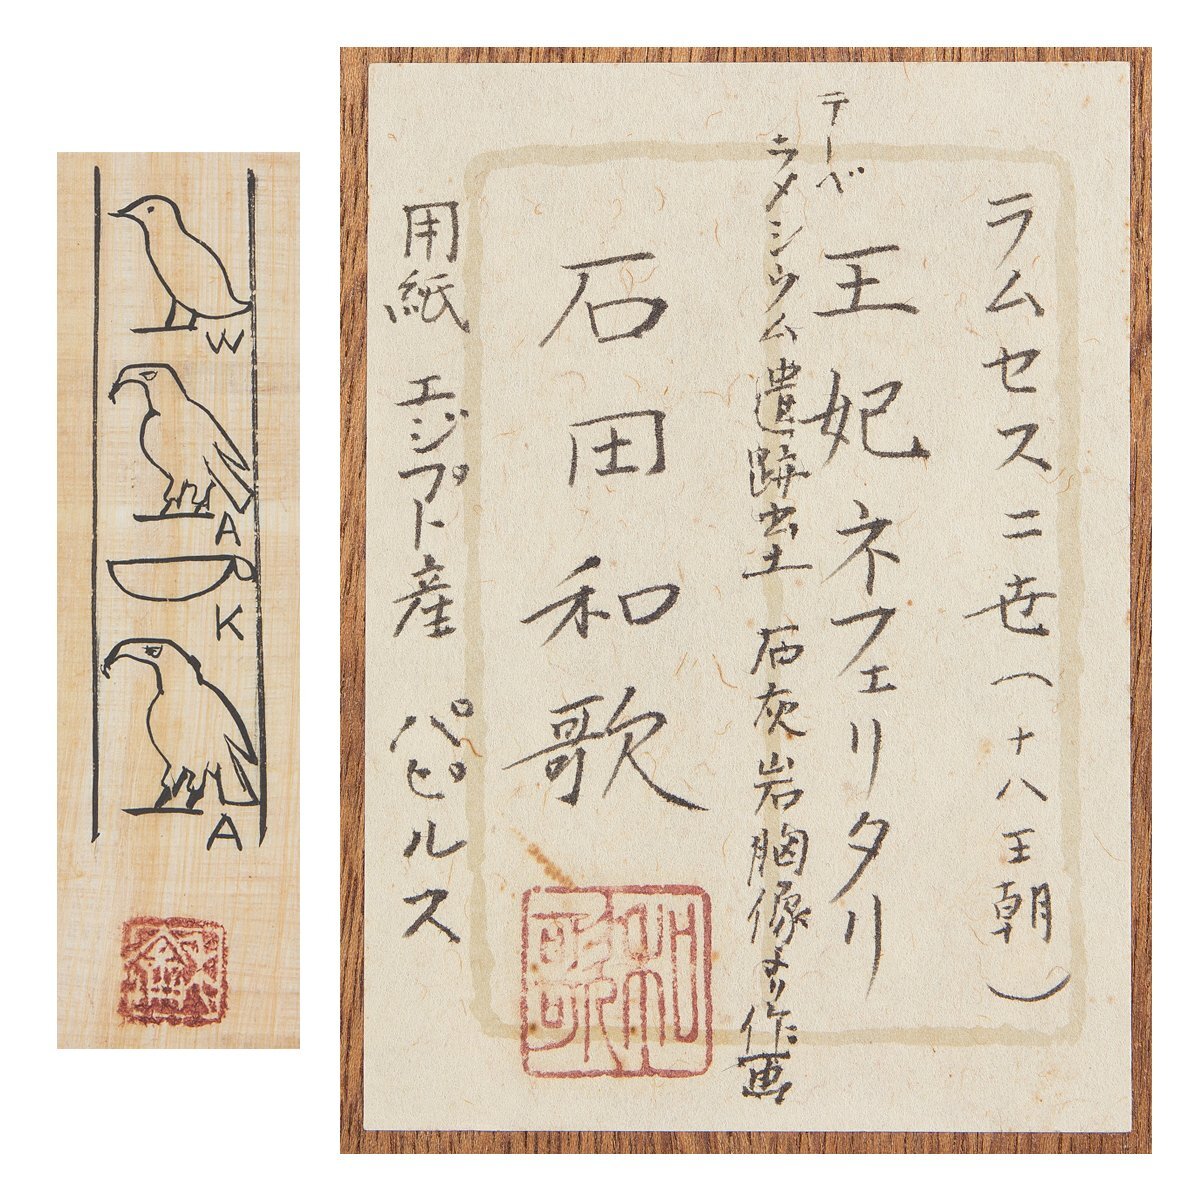 W
A
K
A
ラムセス二世(十八王朝)
王妃ネフェリタリ
テーベ
ラメシウム遺跡出土 石灰岩胸像より作画
石田和歌
和歌
用紙 エジプト産 パピルス